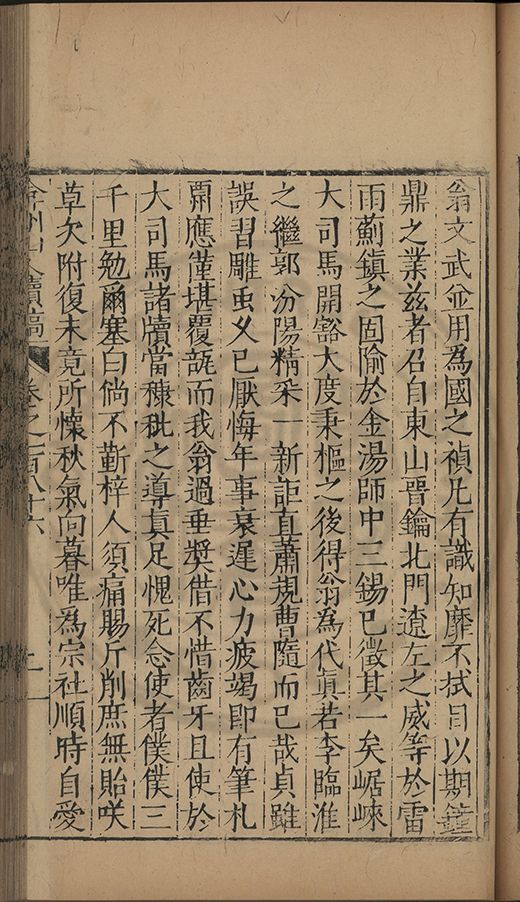 翁文武並用為國之禎凡有識知靡不拭目以期鐘
鼎之業兹者召自東山晉鑰北門遼左之威等於雷
雨薊鎮之固隃於金湯師中三錫已徵其一矣崌崍
大司馬開豁大度秉樞之後得翁為代眞若李臨淮
之繼郭汾陽精采一新詎直蕭規曹隨而已哉貞雖
誤習雕虫乆已厭悔年事衰遲心力疲竭即有筆札
覊應僅堪覆瓿而我翁過垂奬借不惜齒牙且使於
大司馬諸牘當穅秕之導眞足愧死念使者僕僕三
千里勉爾塞白倘不靳梓人須痛賜斤削庶無貽咲
草欠附復未竟所懷秋氣向暮唯為宗社順時自愛
弇州山人續稿 卷之一百八十六